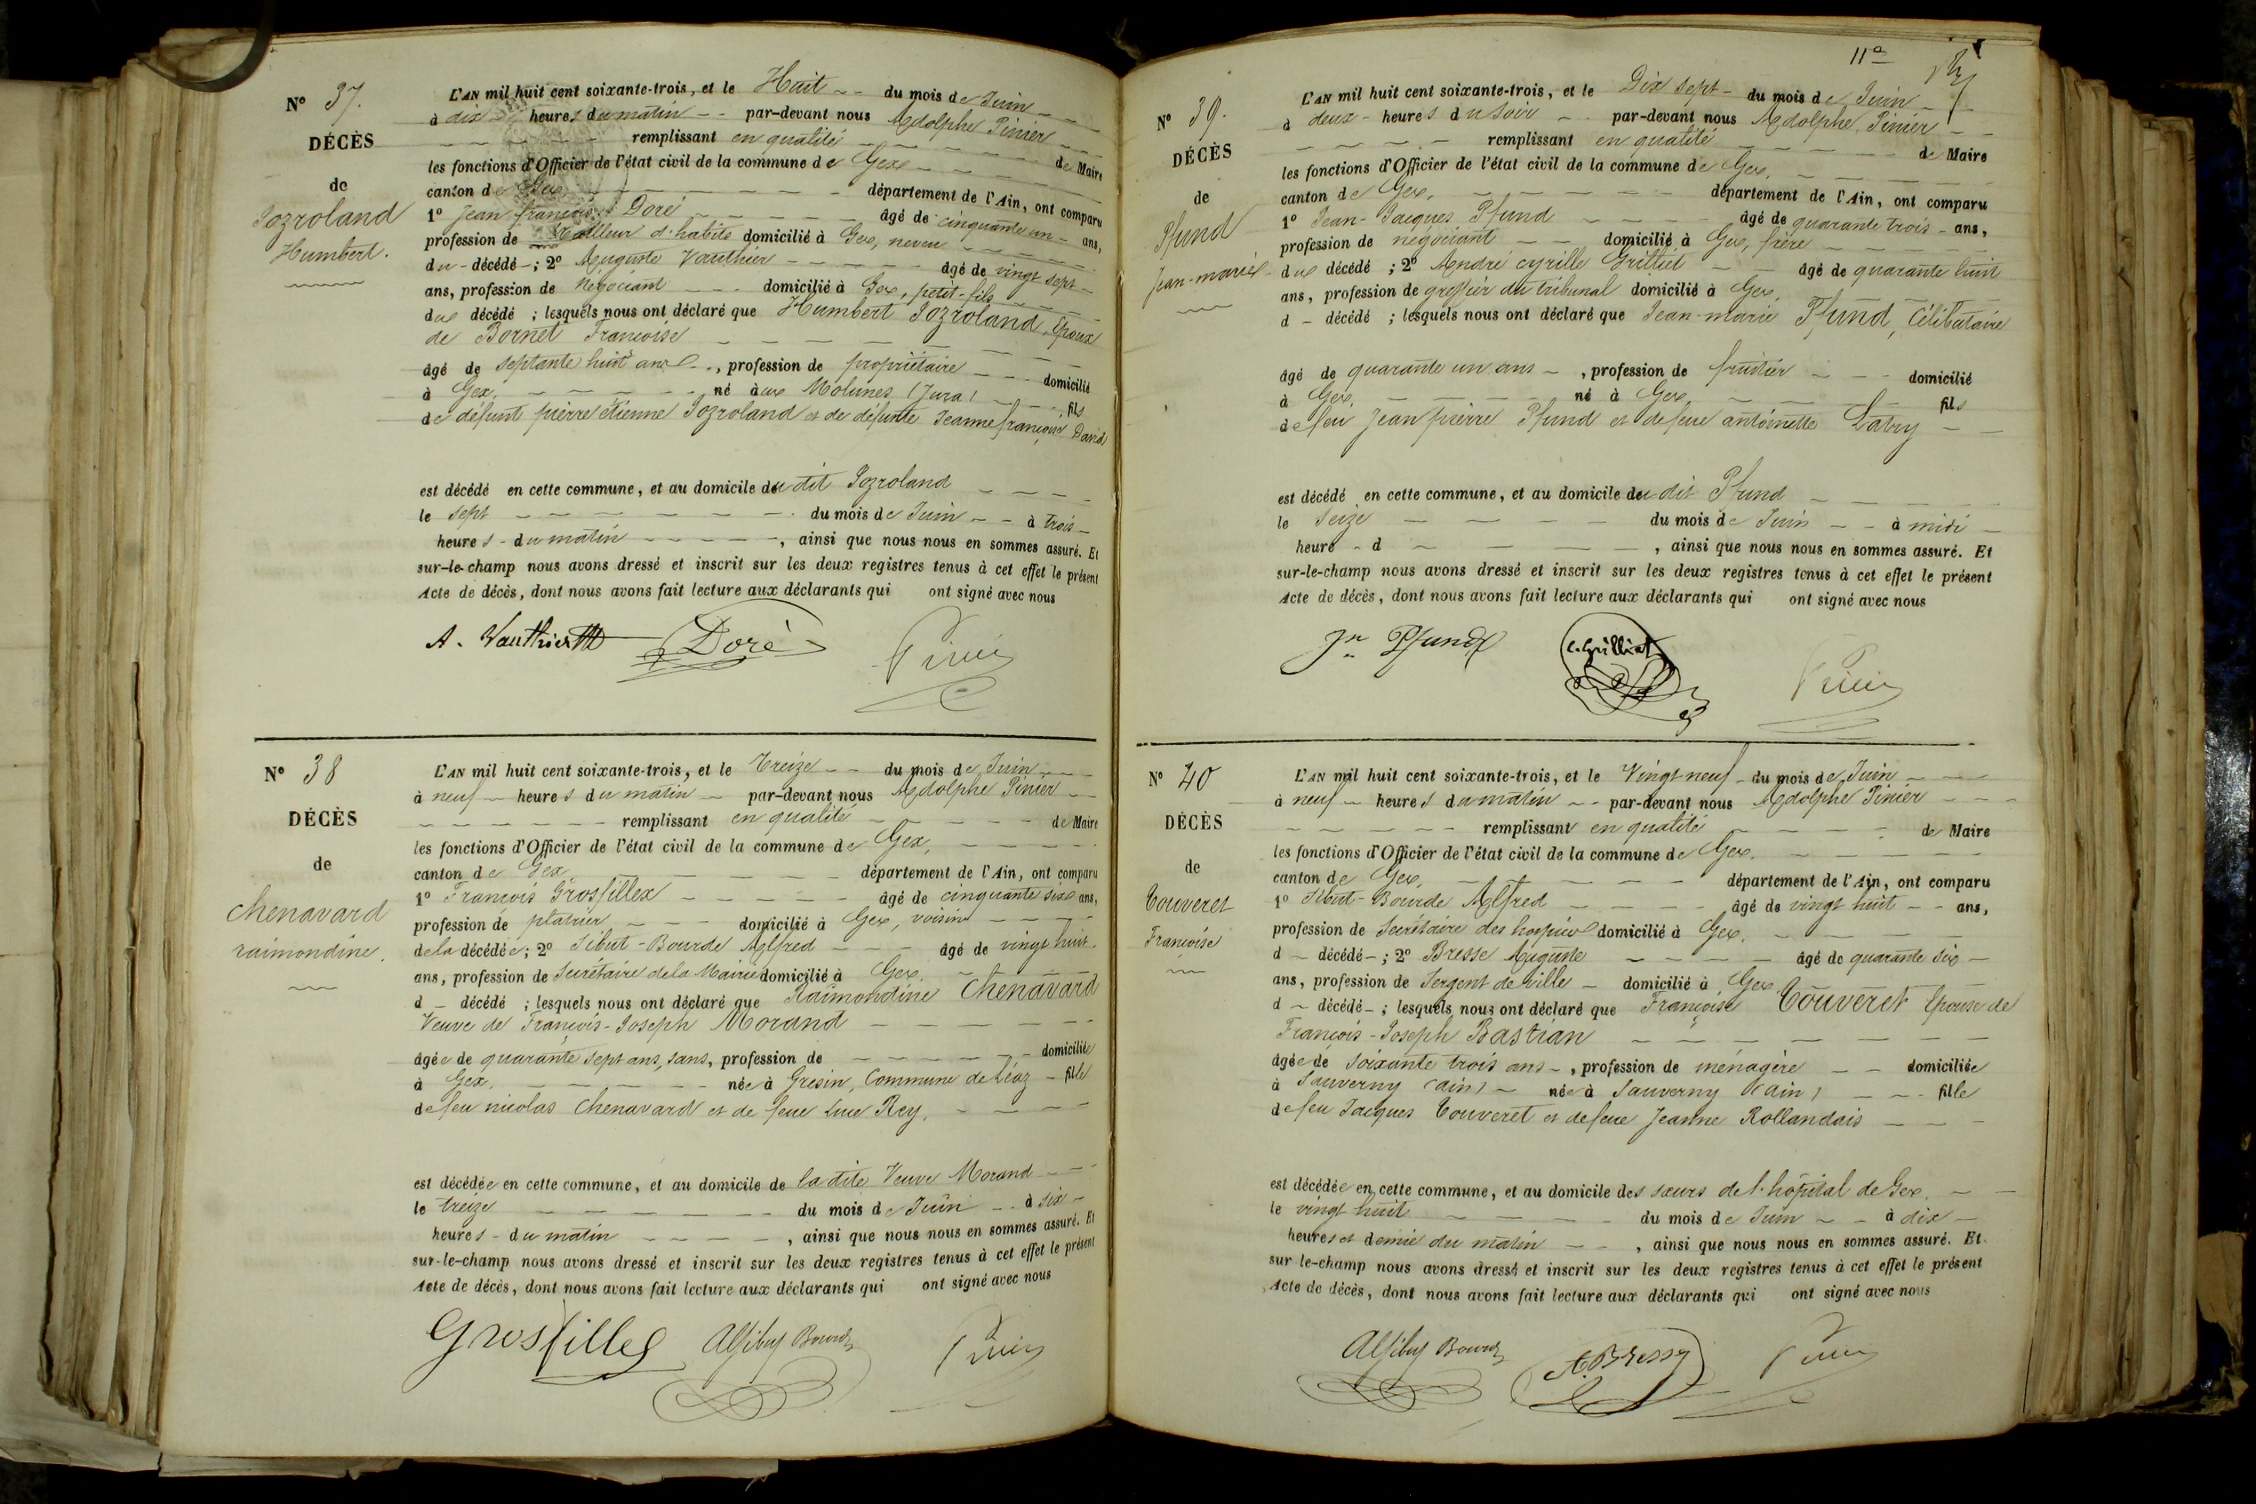 N° 37.
DÉCÈS
de
Jozroland
Humbert.
L'AN mil huit cent soixante-trois, et le Huit du mois de Juin
à dix heures du matin par-devant nous Adolphe Pinier
remplissant en qualité de Maire
les fonctions d'Officier de l'état civil de la commune de Gex
canton de Gex département de l'Ain, ont comparu
1° Jean françois Doré âgé de cinquante un ans,
profession de tailleur d'habits domicilié à Gex, neveu
du décédé ; 2° Auguste Vauthier âgé de vingt sept
ans, profession de Négociant domicilié à Gex, petit-fils
du décédé ; lesquels nous ont déclaré que Humbert Jozroland, Epoux
de Bornet Françoise
âgé de septante huit ans, profession de propriétaire domicilié
à Gex, né aux Molunes (Jura), fils
de défunt pierre étienne Jozroland et de défunte Jeanne françoise David
est décédé en cette commune, et au domicile du dit Jozroland
le sept du mois de Juin à trois
heures du matin, ainsi que nous nous en sommes assuré. Et
sur-le-champ nous avons dressé et inscrit sur les deux registres tenus à cet effet le présent
Acte de décès, dont nous avons fait lecture aux déclarants qui ont signé avec nous
A. Vauthier Doré Pinier
N° 38
DÉCÈS
de
Chenavard
raimondine.
L'AN mil huit cent soixante-trois, et le Treize du mois de Juin
à neuf heures du matin par-devant nous Adolphe Pinier
remplissant en qualité de Maire
les fonctions d'Officier de l'état civil de la commune de Gex,
canton de Gex département de l'Ain, ont comparu
1° François Grosfillex âgé de cinquante six ans,
profession de platrier domicilié à Gex, voisin
de la décédée ; 2° Sibut-Bourde Alfred âgé de vingt huit
ans, profession de Secrétaire de la Mairie domicilié à Gex.
d décédé ; lesquels nous ont déclaré que Raimondine Chenavard
Veuve de François-Joseph Morand
âgée de quarante sept ans, sans, profession de domiciliée
à Gex, née à Gresin, Commune de Léaz fille
de feu nicolas Chenavard et de feue Luce Rey.
est décédée en cette commune, et au domicile de la dite Veuve Morand
le treize du mois de Juin à six
heures du matin, ainsi que nous nous en sommes assuré. Et
sur-le-champ nous avons dressé et inscrit sur les deux registres tenus à cet effet le présent
Acte de décès, dont nous avons fait lecture aux déclarants qui ont signé avec nous
Grosfillex A Sibut Bourde Pinier
11e
N° 39.
DÉCÈS
de
Pfund
Jean-marie
L'AN mil huit cent soixante-trois, et le Dix sept du mois de Juin
à deux heures du Soir par-devant nous Adolphe Pinier
remplissant en qualité de Maire
les fonctions d'Officier de l'état civil de la commune de Gex,
canton de Gex, département de l'Ain, ont comparu
1° Jean-Jacques Pfund âgé de quarante trois ans,
profession de négociant domicilié à Gex, frère
du décédé ; 2° André cyrille Grilliet âgé de quarante huit
ans, profession de greffier du tribunal domicilié à Gex,
d décédé ; lesquels nous ont déclaré que Jean-marie Pfund, Célibataire
âgé de quarante un ans, profession de fruitier domicilié
à Gex, né à Gex, fils
de feu Jean pierre Pfund et de feue antoinette Labry
est décédé en cette commune, et au domicile du dit Pfund
le Seize du mois de Juin à midi
heure d, ainsi que nous nous en sommes assuré. Et
sur-le-champ nous avons dressé et inscrit sur les deux registres tenus à cet effet le présent
Acte de décès, dont nous avons fait lecture aux déclarants qui ont signé avec nous
Jn Pfund C. Grilliet Pinier
N° 40
DÉCÈS
de
Couveret
Françoise
L'AN mil huit cent soixante-trois, et le Vingt neuf du mois de Juin
à neuf heures du matin par-devant nous Adolphe Pinier
remplissant en qualité de Maire
les fonctions d'Officier de l'état civil de la commune de Gex.
canton de Gex, département de l'Ain, ont comparu
1° Sibut-Bourde Alfred âgé de vingt huit ans,
profession de Secrétaire des hospices domicilié à Gex.
d décédé ; 2° Bresse Auguste âgé de quarante six
ans, profession de Sergent de ville domicilié à Gex
d décédé ; lesquels nous ont déclaré que Françoise Couveret Epouse de
François-Joseph Bastian
âgée de soixante trois ans, profession de ménagère domiciliée
à Sauverny (ain) née à Sauverny (ain) fille
de feu Jacques Couveret et de feue Jeanne Rollandais
est décédée en cette commune, et au domicile des sœurs de l'hôpital de Gex.
le vingt huit du mois de Juin à dix
heures et demie du matin, ainsi que nous nous en sommes assuré. Et
sur le-champ nous avons dressé et inscrit sur les deux registres tenus à cet effet le présent
Acte de décès, dont nous avons fait lecture aux déclarants qui ont signé avec nous
A Sibut Bourde A. Bresse Pinier